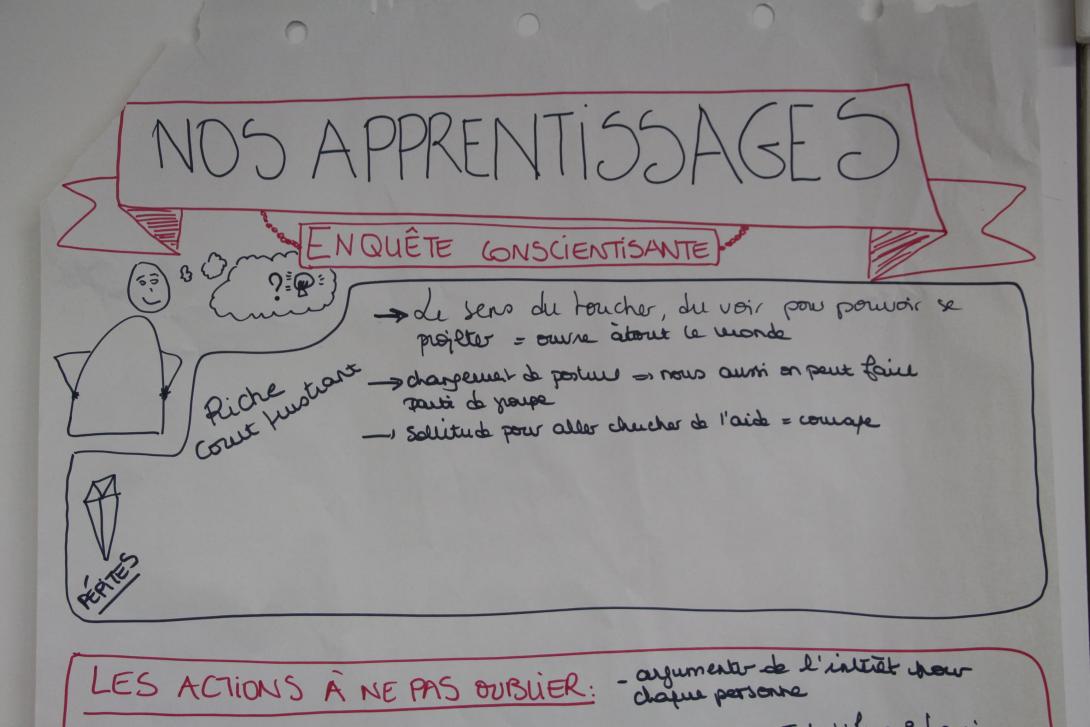 NOS APPRENTISSAGES
ENQUÊTE CONSCIENTISANTE
?
→ Le sens du toucher, du voir pour pouvoir se
projeter = ouvre à tout le monde
→ changement de posture => nous aussi on peut faire
partie de groupe
→ Sollitude pour aller chercher de l'aide = courage
Riche
Court frustrant
PÉPITES
LES ACTIONS À NE PAS OUBLIER:
- argumenter de l'intérêt pour
chaque personne